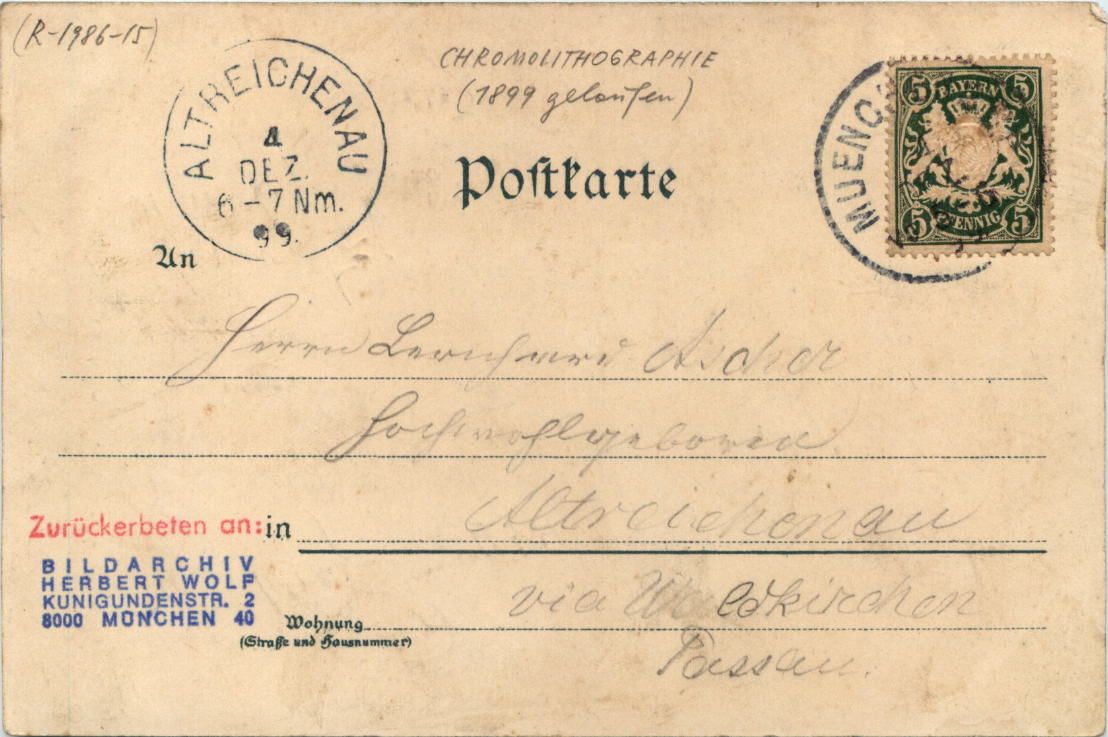 (R-1986-15)
CHROMOLITHOGRAPHIE
(1899 gelaufen)
ALTREICHENAU
4
DEZ.
6-7 Nm.
99.
Postkarte
MUENC
BAYERN
5 5
5 PFENNIG 5
An
Herrn Ascher
Hochwohlgeboren
Zurückerbeten an:
in
Altreichenau
BILDARCHIV
HERBERT WOLF
KUNIGUNDENSTR. 2
8000 MÜNCHEN 40
via Waldkirchen
Wohnung
(Straße und Hausnummer)
Passau.